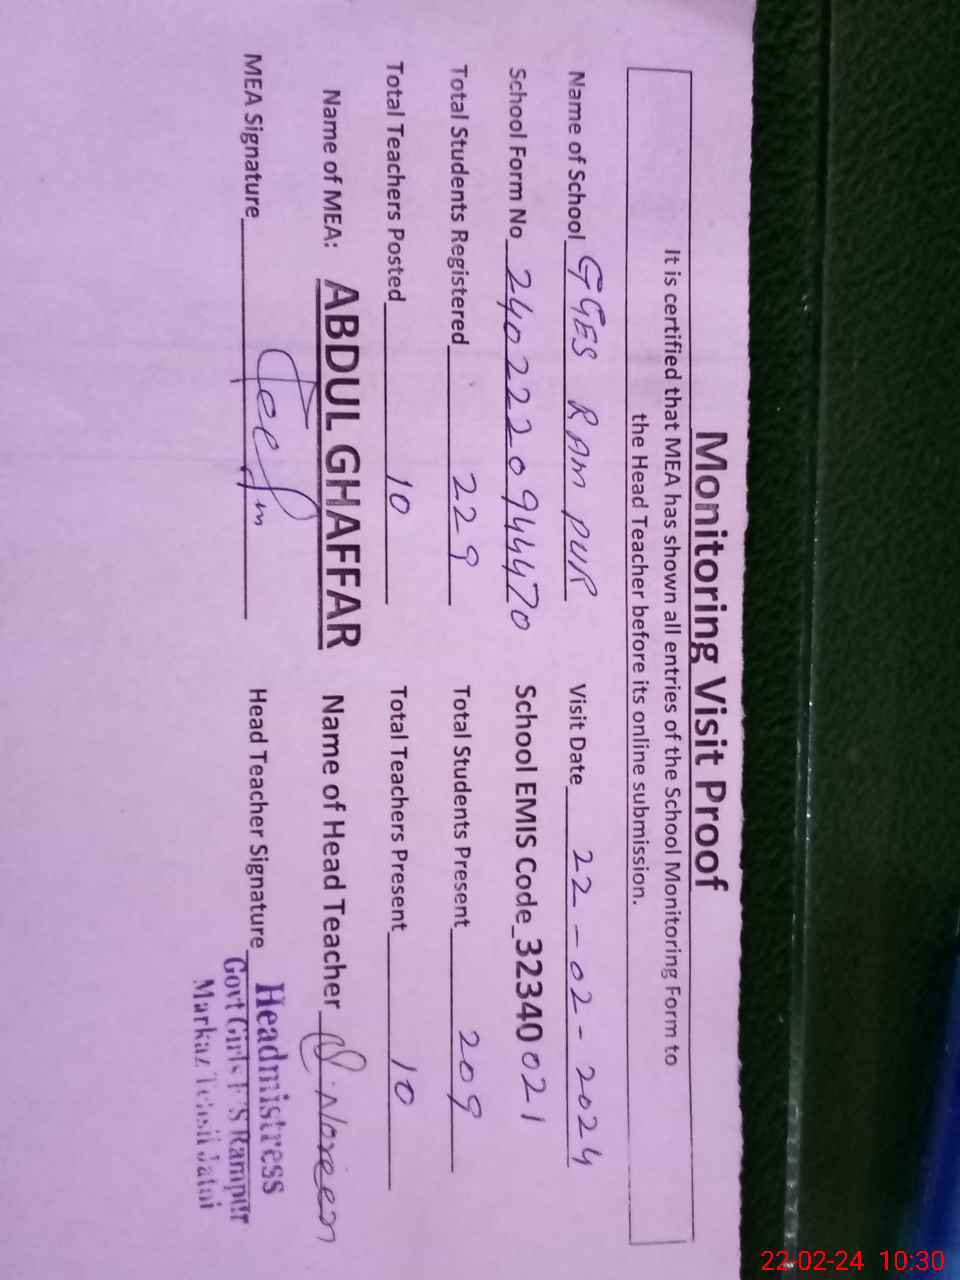 Monitoring Visit Proof
It is certified that MEA has shown all entries of the School Monitoring Form to
the Head Teacher before its online submission.
Name of School GGES RAMPUR Visit Date 22-02-2024
School Form No 24022220944470 School EMIS Code 32340021
Total Students Registered 229 Total Students Present 209
Total Teachers Posted 10 Total Teachers Present 10
Name of MEA: ABDUL GHAFFAR Name of Head Teacher Noreen
MEA Signature Head Teacher Signature
Headmistress
Govt Girls E/S Rampur
Markaz Tehsil Jatoi
22-02-24 10:30